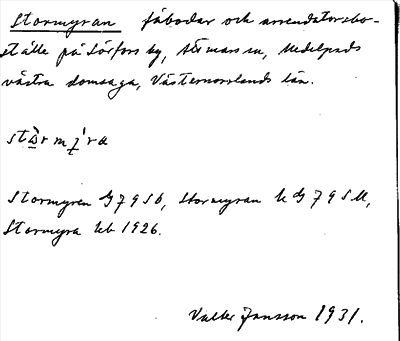 Stormyran fäbodar och arrendatorsbo-
ställe på Sörfors by, Attmar sn, Medelpads
västra domsaga, Västernorrlands län.
Stormyren G 7 9 S b, Stormyran k G 7 9 S M,
Stormyra kb 1926.
Valter Jansson 1931.